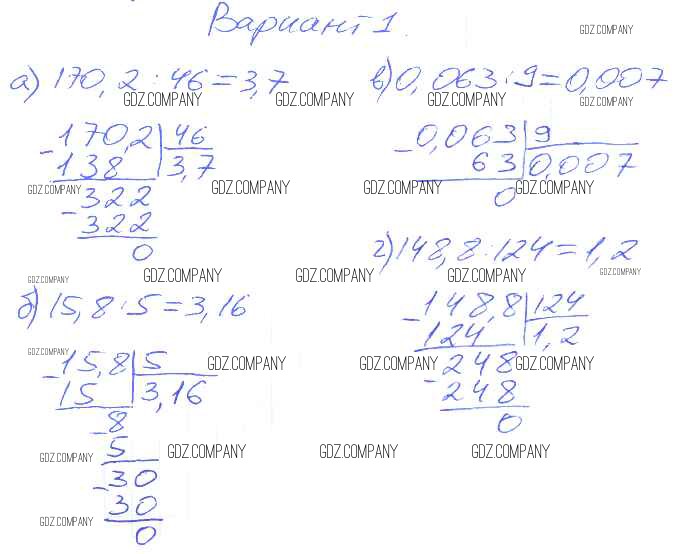 Вариант 1.
GDZ.COMPANY
а) 170,2 : 46 = 3,7
GDZ.COMPANY GDZ.COMPANY
- 170,2 | 46
138 | 3,7
GDZ.COMPANY GDZ.COMPANY
- 322
322
0
GDZ.COMPANY GDZ.COMPANY
б) 15,8 : 5 = 3,16
- 15,8 | 5
GDZ.COMPANY GDZ.COMPANY
15 | 3,16
- 8
5
GDZ.COMPANY GDZ.COMPANY
- 30
30
GDZ.COMPANY
0
в) 0,063 : 9 = 0,007
GDZ.COMPANY GDZ.COMPANY
- 0,063 | 9
63 | 0,007
GDZ.COMPANY GDZ.COMPANY
0
г) 148,8 : 124 = 1,2
GDZ.COMPANY GDZ.COMPANY GDZ.COMPANY
- 148,8 | 124
124 | 1,2
GDZ.COMPANY GDZ.COMPANY
- 248
248
0
GDZ.COMPANY GDZ.COMPANY